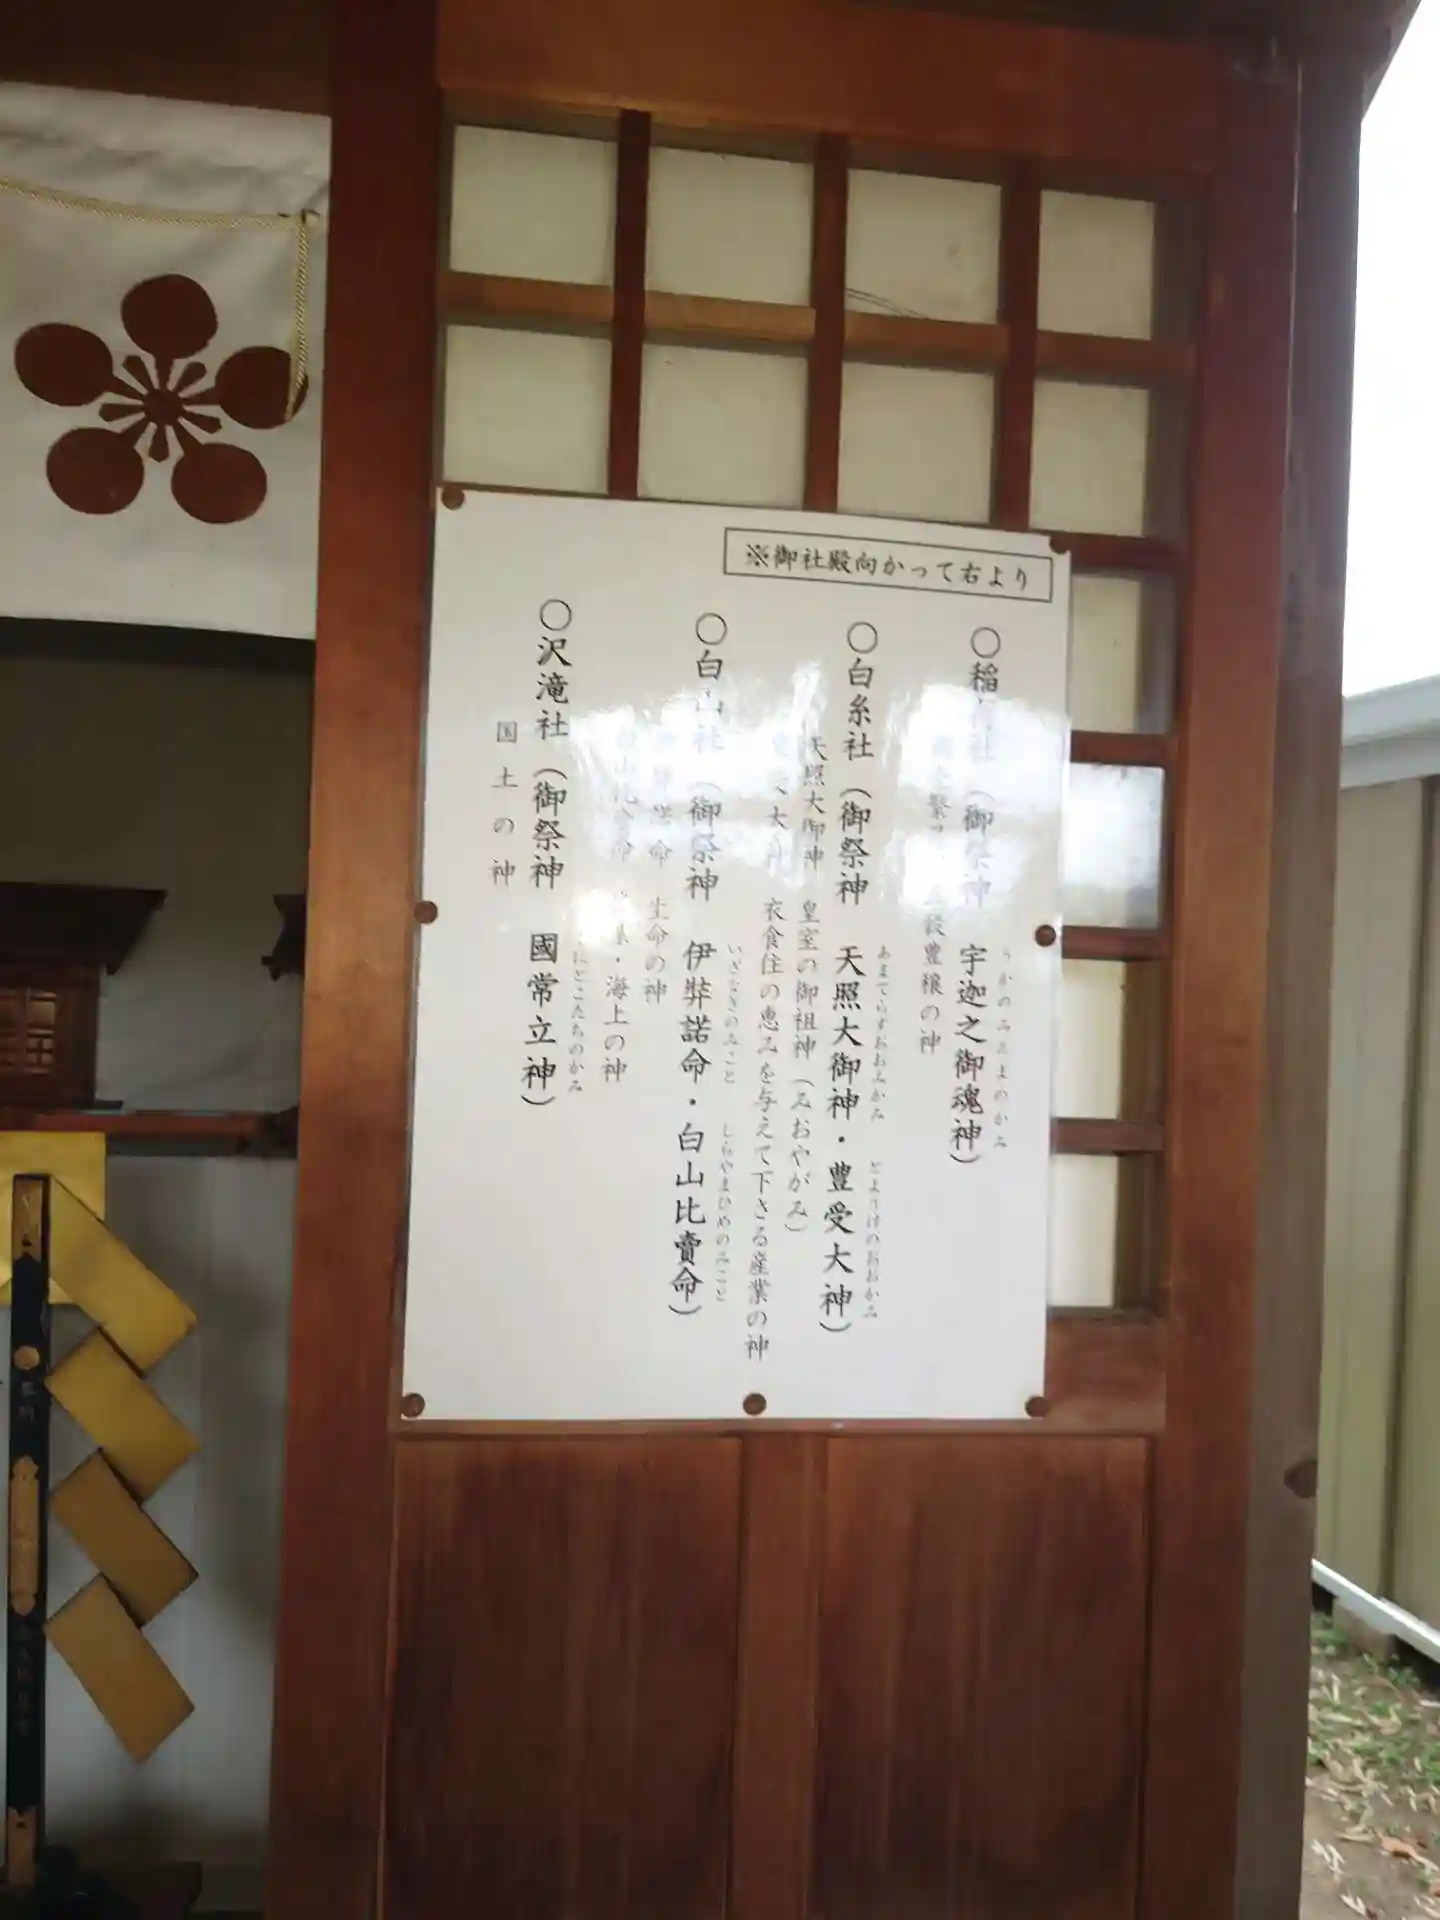 ※御社殿向かって右より
〇稲荷社(御祭神 宇迦之御魂神)
うかのみたまのかみ
五穀豊穣の神
〇白糸社(御祭神 天照大御神・豊受大神)
あまてらすおおみかみ とようけのおおかみ
天照大御神 皇室の御祖神(みおやがみ)
豊受大神 衣食住の恵みを与えて下さる産業の神
〇白山社(御祭神 伊弊諾命・白山比賣命)
いざなぎのみこと しらやまひめのみこと
命 生命の神
白山比賣命 ・海上の神
〇沢滝社(御祭神 國常立神)
にとこたちのかみ
国土の神